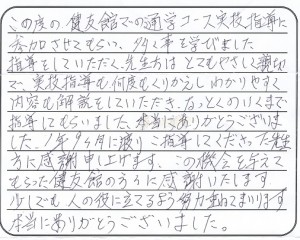 この度の健友館での通学コース実技指導に
参加させてもらい、多く事を学びました
指導をしていただく先生方はとてもやさしく親切
で、実技指導も何度もくりかえしわかりやすく
内容も解説をしていただき、なっとくのいくまで
指導してもらいました。本当にありがとうございま
した。1年9ヶ月に渡りご指導してくださった先生
方に感謝申し上げます。この機会を与えて
もらった健友館の方々に感謝いたします
少しでも人の役に立てる様努力重ねてまいります
本当にありがとうございました。